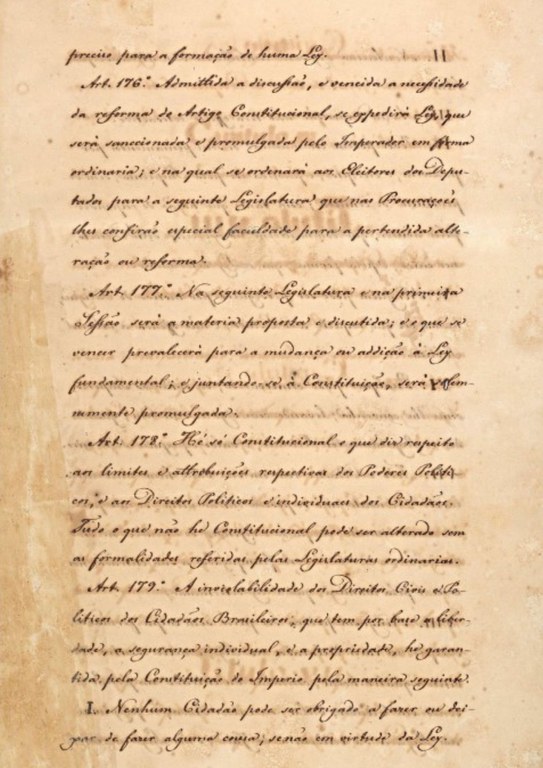 preciso para a formação de huma Ley.
Art. 176.º Admittida a discussão, e vencida a necessidade
da reforma do Artigo Constitucional, se expedirá Ley, que
será sanccionada e promulgada pelo Imperador em forma
ordinaria; e na qual se ordenará aos Eleitores dos Depu-
tados para a seguinte Legislatura que nas Procurações
lhes confirão especial faculdade para a pertendida alte-
ração ou reforma.
Art. 177.º Na seguinte Legislatura e na primeira
Sessão será a materia proposta e discutida; e o que se
vencer prevalecerá para a mudança ou addição á Ley
fundamental; e juntando-se á Constituição, será solem-
nemente promulgada.
Art. 178.º Hé só Constitucional o que diz respeito
aos limites e attribuições respectivas dos Poderes Politi-
cos, e aos Direitos Politicos e individuaes dos Cidadãos.
Tudo o que não he Constitucional pode ser alterado sem
as formalidades referidas pelas Legislaturas ordinarias.
Art. 179.º A inviolabilidade dos Direitos Civis e Po-
liticos dos Cidadãos Brasileiros, que tem por base a liber-
dade, a segurança individual, e a propriedade, he garan-
tida pela Constituição do Imperio pela maneira seguinte.
I. Nenhum Cidadão pode ser obrigado a fazer ou dei-
xar de fazer alguma cousa; senão em virtude da Ley.